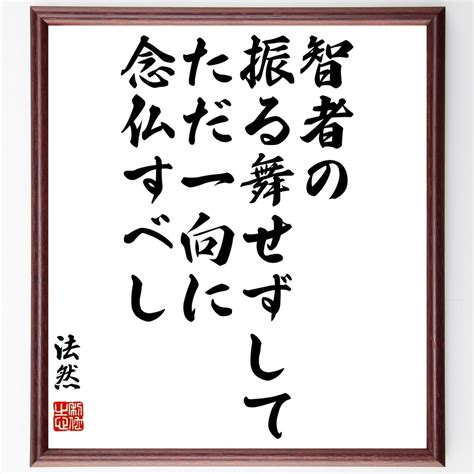 智者の
振る舞せずして
ただ一向に
念仏すべし
法然